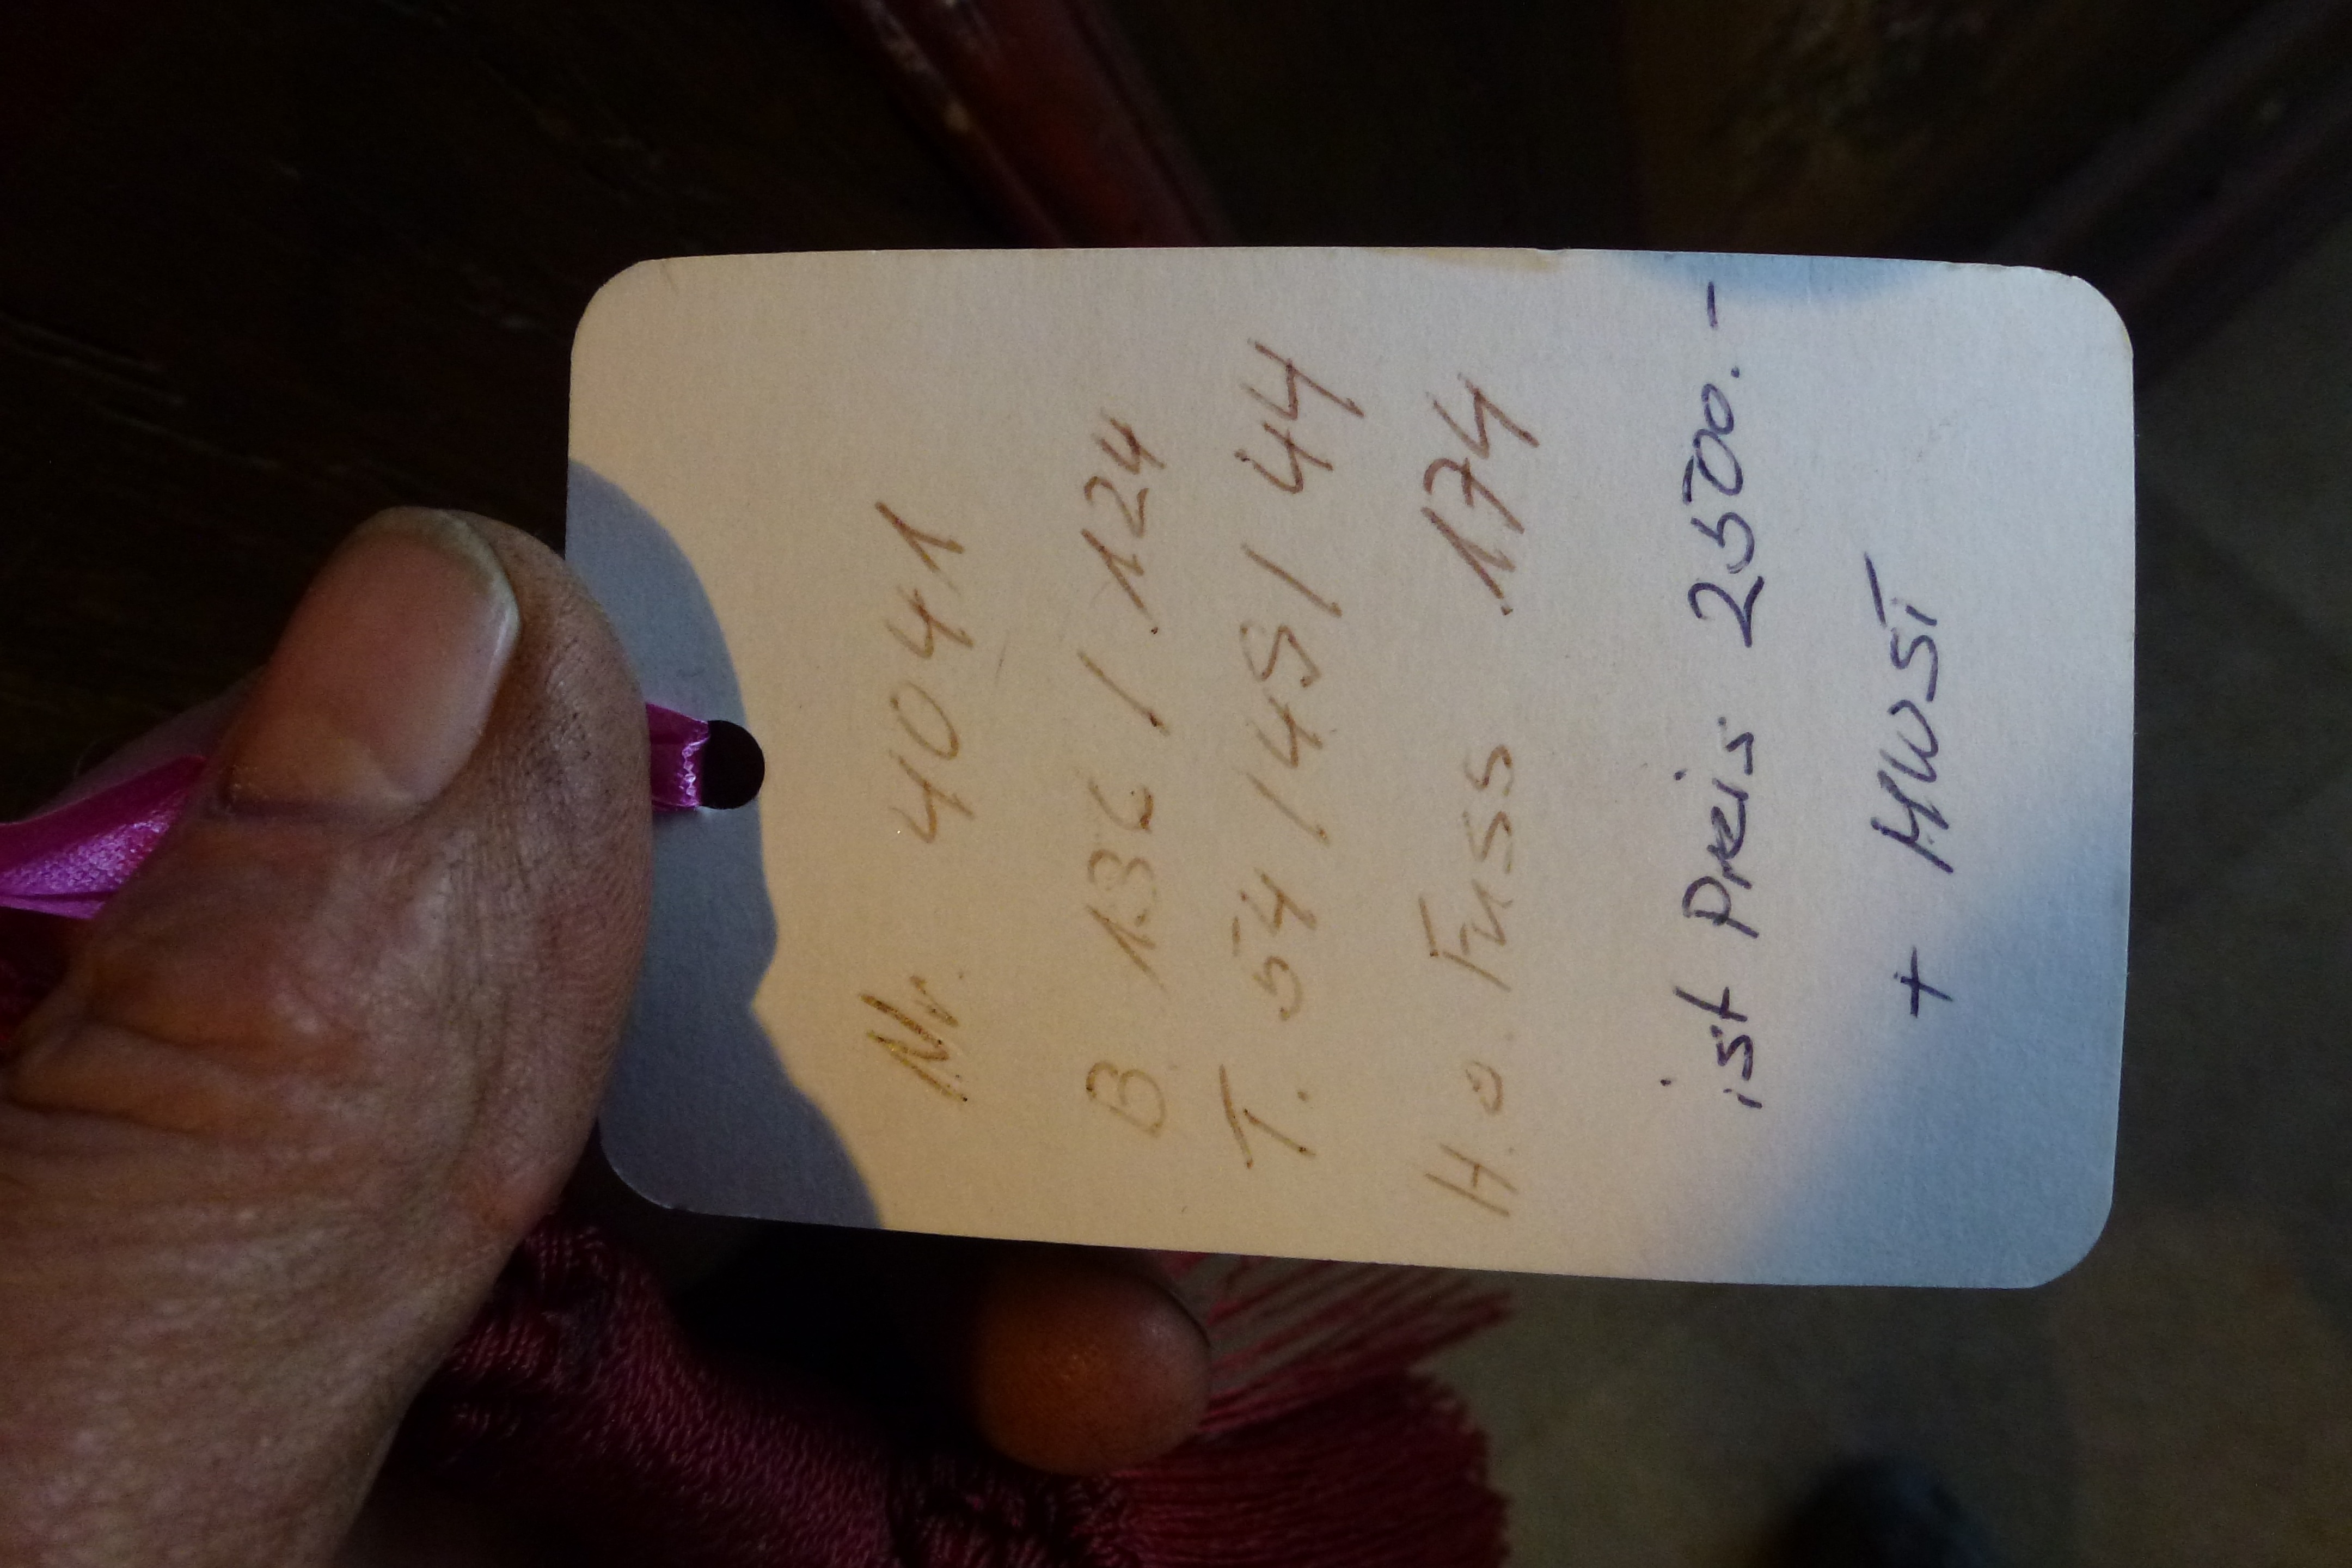 Nr. 4041
B 136 / 124
T. 54 / 49 / 44
H.o. Fuss 174
ist Preis 2500.-
+ MWST